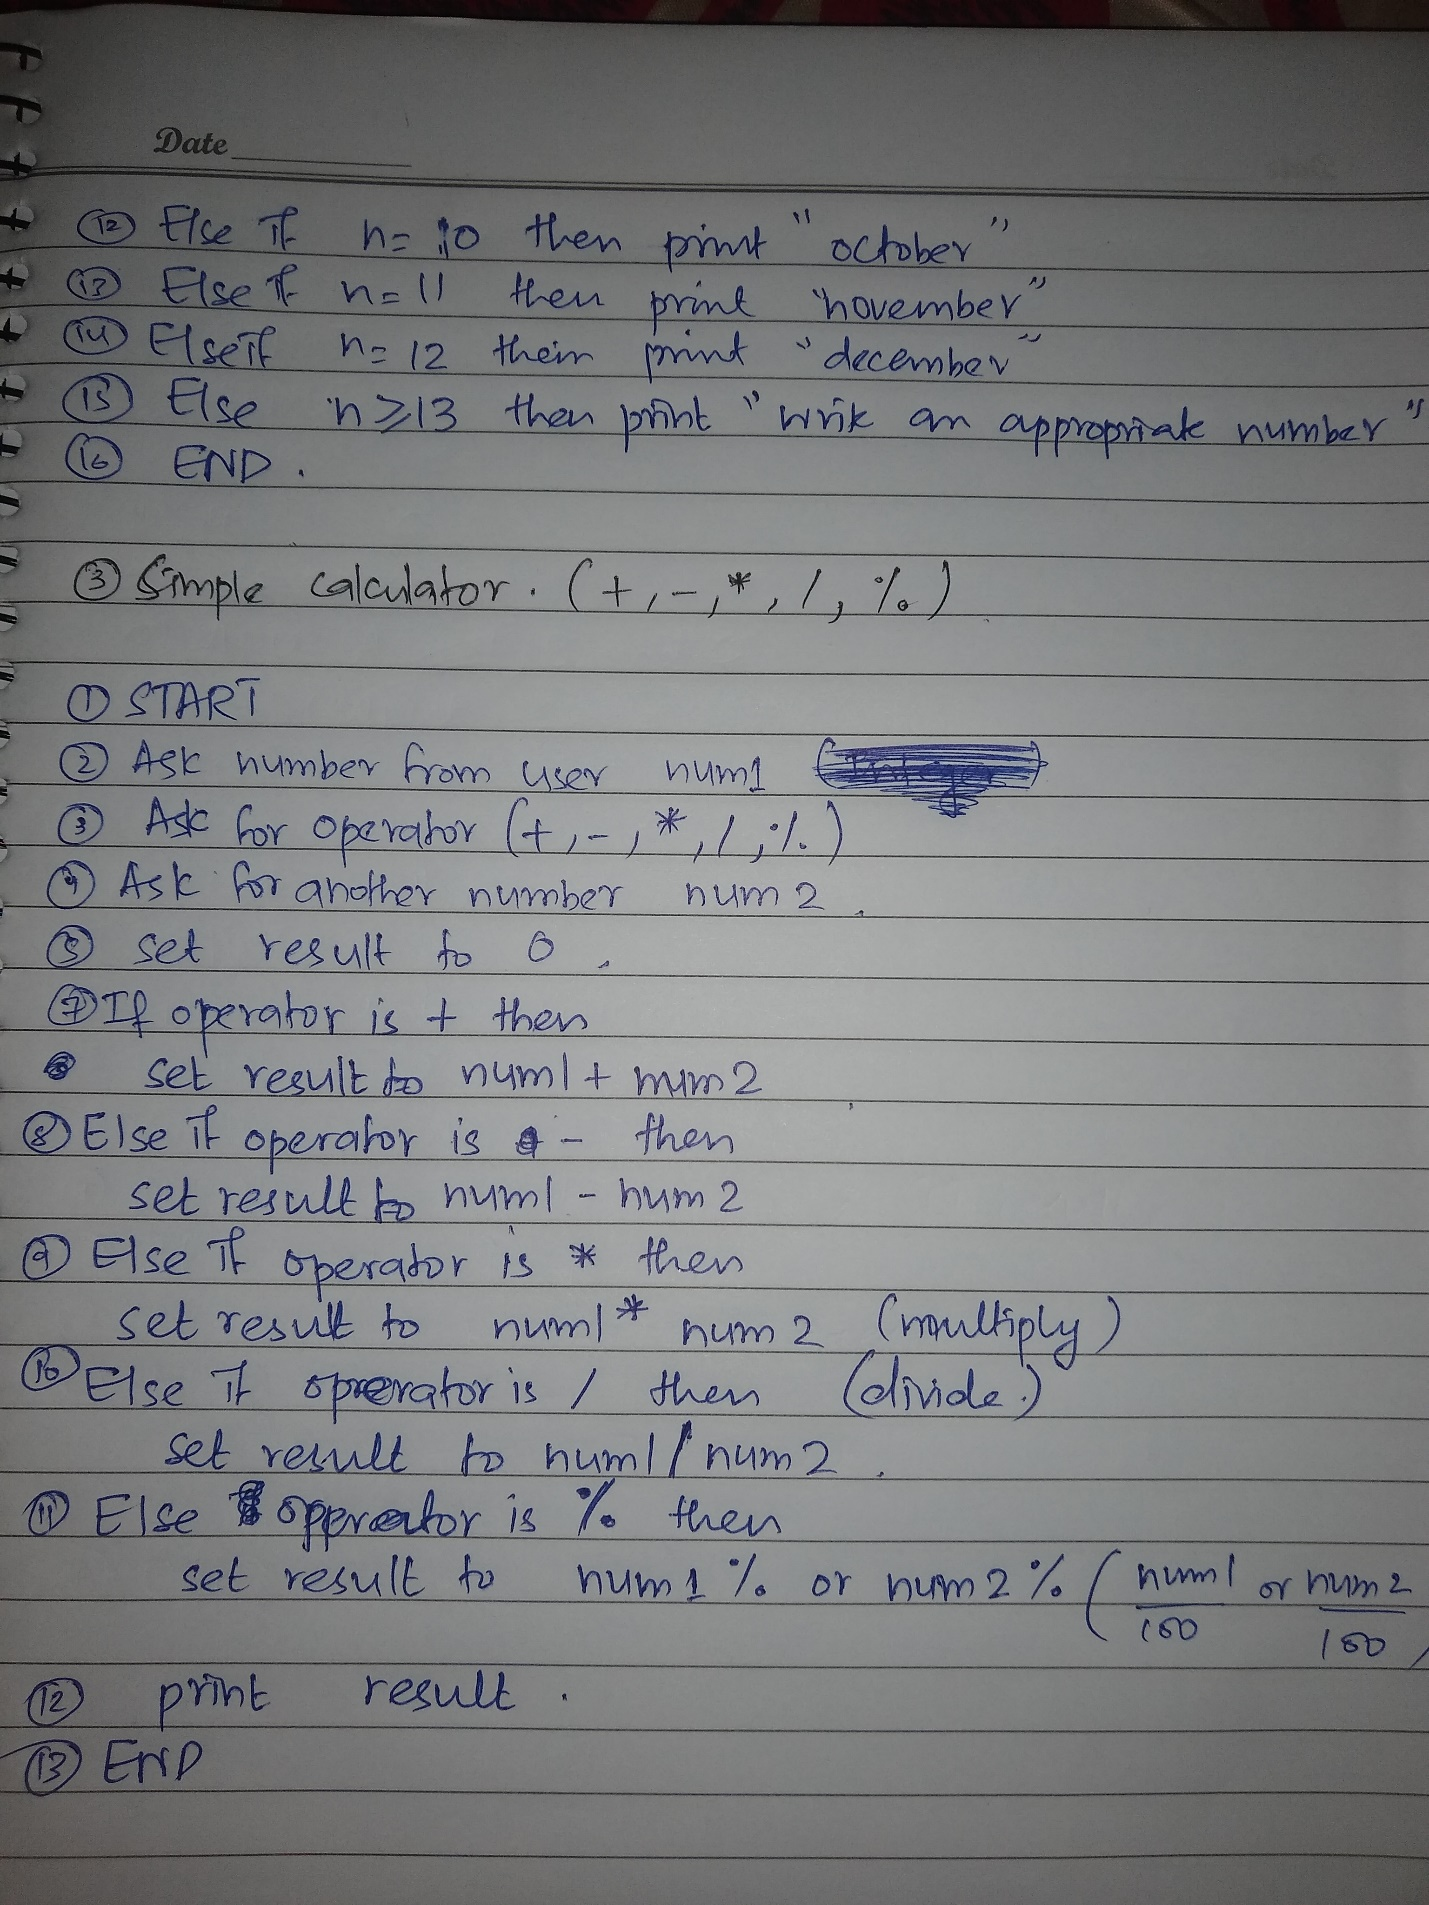 Date
⑫ Else if n= 10 then print "october"
⑬ Else if n=11 then print "november"
⑭ Else if n= 12 then print "december"
⑮ Else n≥13 then print "write an appropriate number"
⑯ END.
③ Simple calculator. (+,-,*,/,%)
① START
② Ask number from user num1
③ Ask for operator (+,-,*,/,%)
④ Ask for another number num2.
⑤ set result to 0.
⑦ If operator is + then
set result to num1 + num2
⑧ Else if operator is - then
set result to num1 - num2
⑨ Else if operator is * then
set result to num1 * num2 (multiply)
⑩ Else if oprerator is / then (divide.)
set result to num1/num2.
⑪ Else oppreator is % then
set result to num1 % or num2 % (num1/100 or num2/100)
⑫ print result.
⑬ END